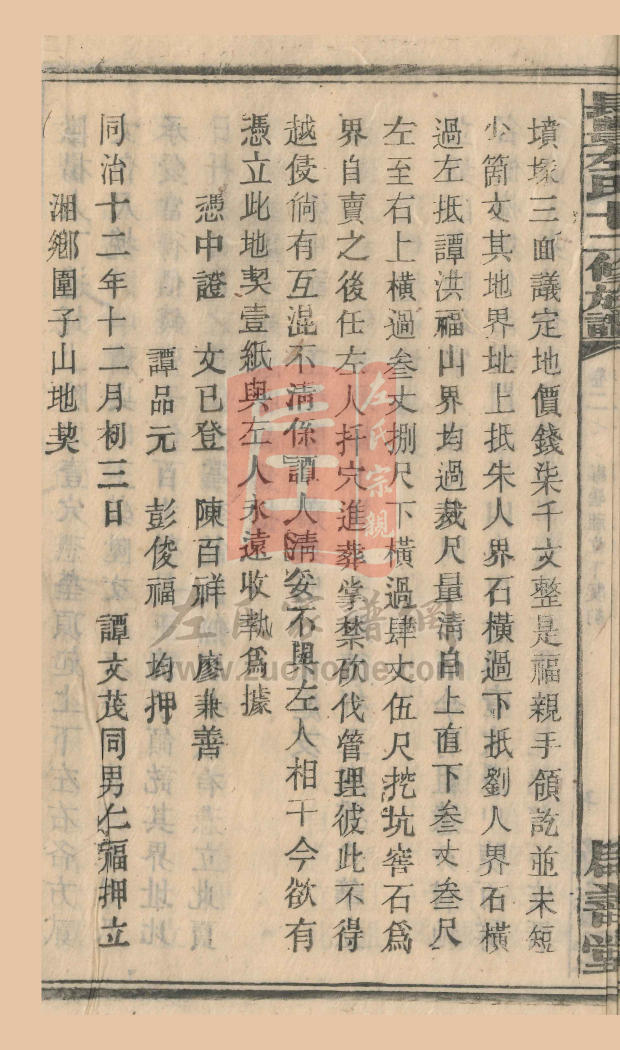 墳塚三面議定地價錢柒千文整是福親手領訖並未短
少箇文其地界址上抵朱人界石橫過下抵劉人界石橫
過左抵譚洪福山界均過裁尺量清自上直下叁丈叁尺
左至右上橫過叁丈捌尺下橫過肆丈伍尺挖坑窖石爲
界自賣之後任左人扦穴進葬掌禁砍伐管理彼此不得
越侵倘有互混不清係譚人清妥不與左人相干今欲有
憑立此地契壹紙與左人永遠收執爲據
憑中證 文已登 陳百祥 廖兼善
譚品元 彭俊福 均押
同治十二年十二月初三日 譚文茂同男仁福押立
湘鄉圍子山地契
左氏十二修族譜
卷二
左氏宗親
左氏家譜網
www.zuohome.com